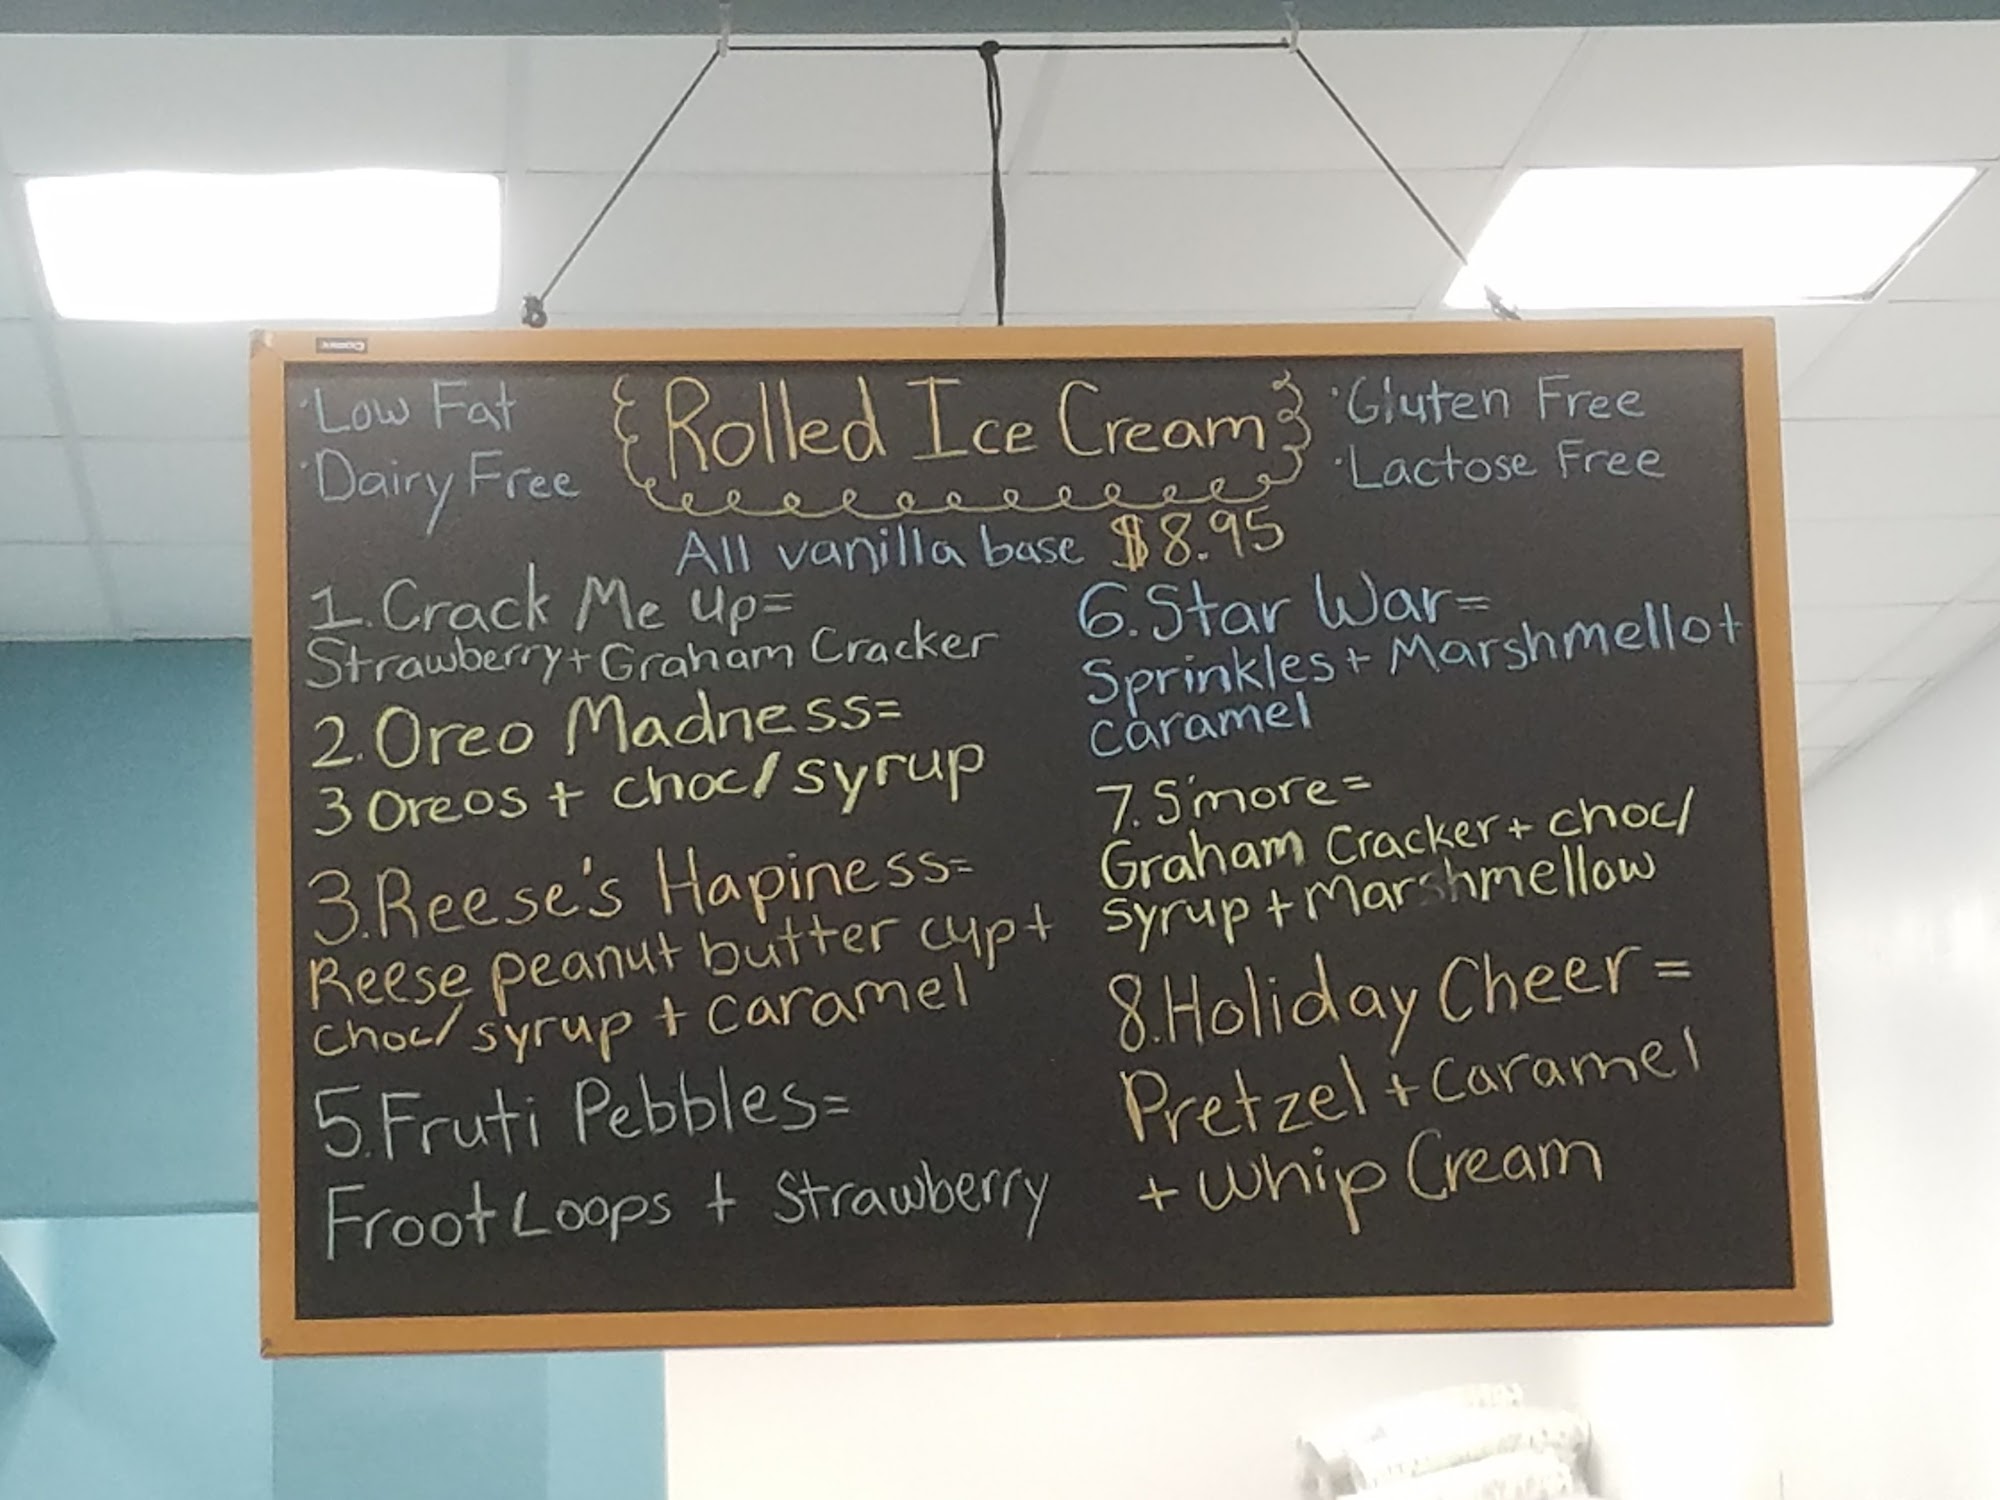 ·Low Fat
·Dairy Free
Rolled Ice Cream
·Gluten Free
·Lactose Free
All vanilla base $8.95
1.Crack Me Up=
Strawberry+Graham Cracker
2.Oreo Madness=
3 Oreos + choc/syrup
3.Reese's Hapiness=
Reese peanut butter cup+
choc/syrup + caramel
5.Fruti Pebbles=
Froot Loops + Strawberry
6.Star War=
Sprinkles + Marshmello+
caramel
7.S'more=
Graham Cracker + choc/
syrup + Marshmellow
8.Holiday Cheer=
Pretzel + caramel
+ Whip Cream